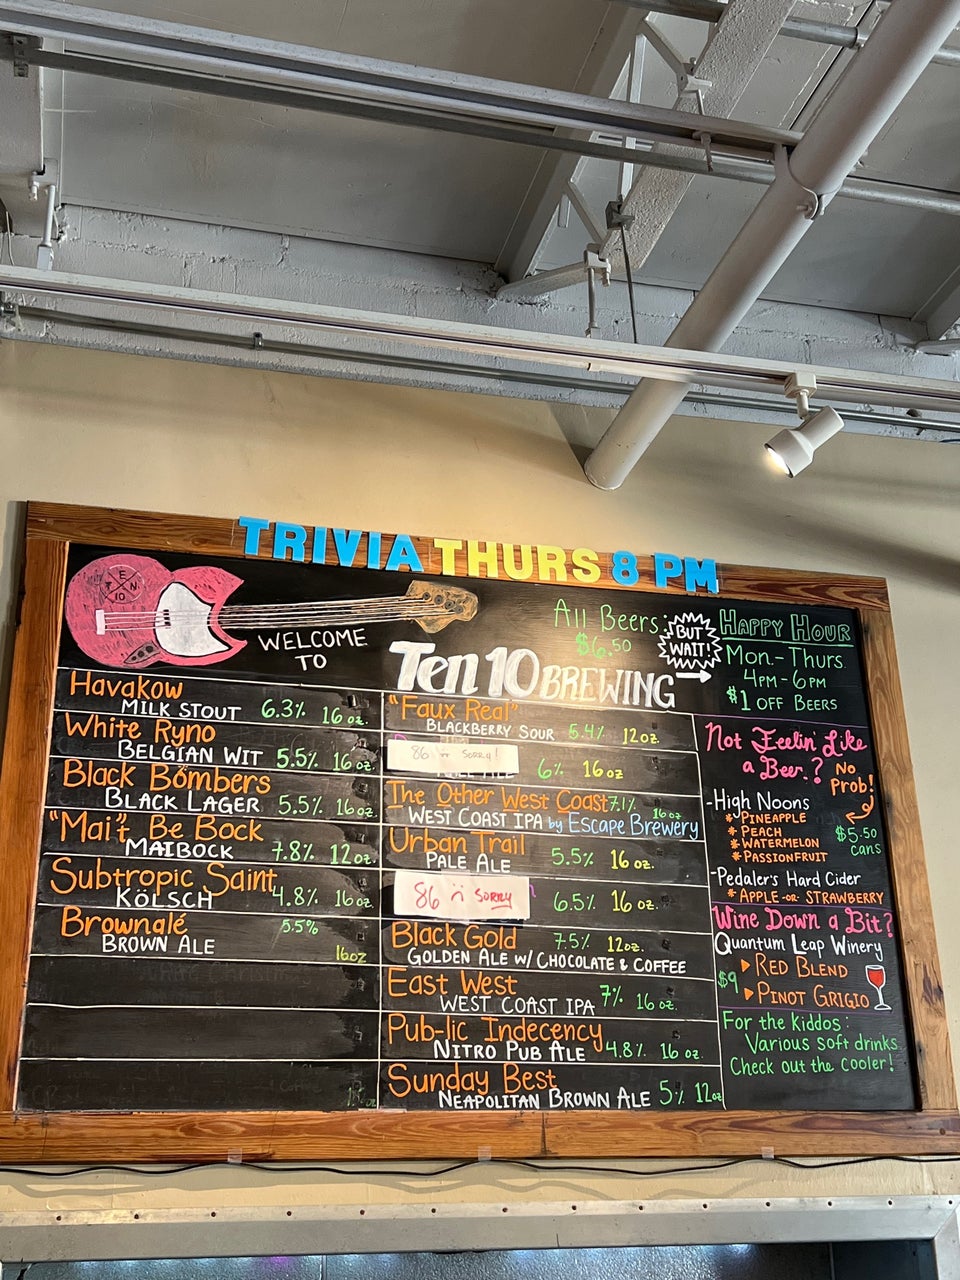 TRIVIA THURS 8 PM
TEN
10
WELCOME
TO
Ten 10 BREWING
All Beers:
$6.50
BUT
WAIT!
Happy Hour
Mon.-Thurs.
4pm-6pm
$1 off Beers
Havakow
Milk Stout 6.3% 16 oz.
White Ryno
Belgian Wit 5.5% 16 oz.
Black Bombers
Black Lager 5.5% 16 oz.
"Mai't Be Bock
Maibock 7.8% 12oz.
Subtropic Saint
Kölsch 4.8% 16 oz.
Brownalé 5.5%
Brown Ale 16oz
"Faux Real"
Blackberry Sour 5.4% 12oz.
86 Sorry!
6% 16oz
The Other West Coast 7.1% 16oz
West Coast IPA by Escape Brewery
Urban Trail
Pale Ale 5.5% 16 oz.
86 Sorry
6.5% 16 oz.
Black Gold 7.5% 12oz.
Golden Ale w/ Chocolate & Coffee
East West
West Coast IPA 7% 16 oz.
Pub-lic Indecency
Nitro Pub Ale 4.8% 16 oz.
Sunday Best
Neapolitan Brown Ale 5% 12oz
Not Feelin' Like
a Beer? No
Prob!
-High Noons
* Pineapple
* Peach
* Watermelon
* Passionfruit
$5.50
cans
-Pedaler's Hard Cider
* Apple -or- Strawberry
Wine Down a Bit?
Quantum Leap Winery
$9
Red Blend
Pinot Grigio
For the kiddos:
Various soft drinks.
Check out the cooler!